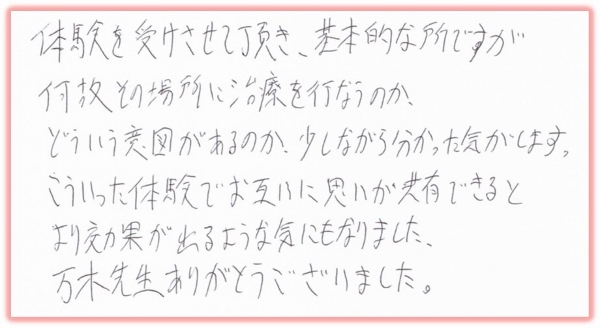 体験を受けさせて頂き、基本的な所ですが
何故その場所に治療を行なうのか、
どういう意図があるのか、少しながら分かった気がします。
こういった体験でお互いに思いが共有できると
より効果が出るような気にもなりました、
万木先生ありがとうございました。